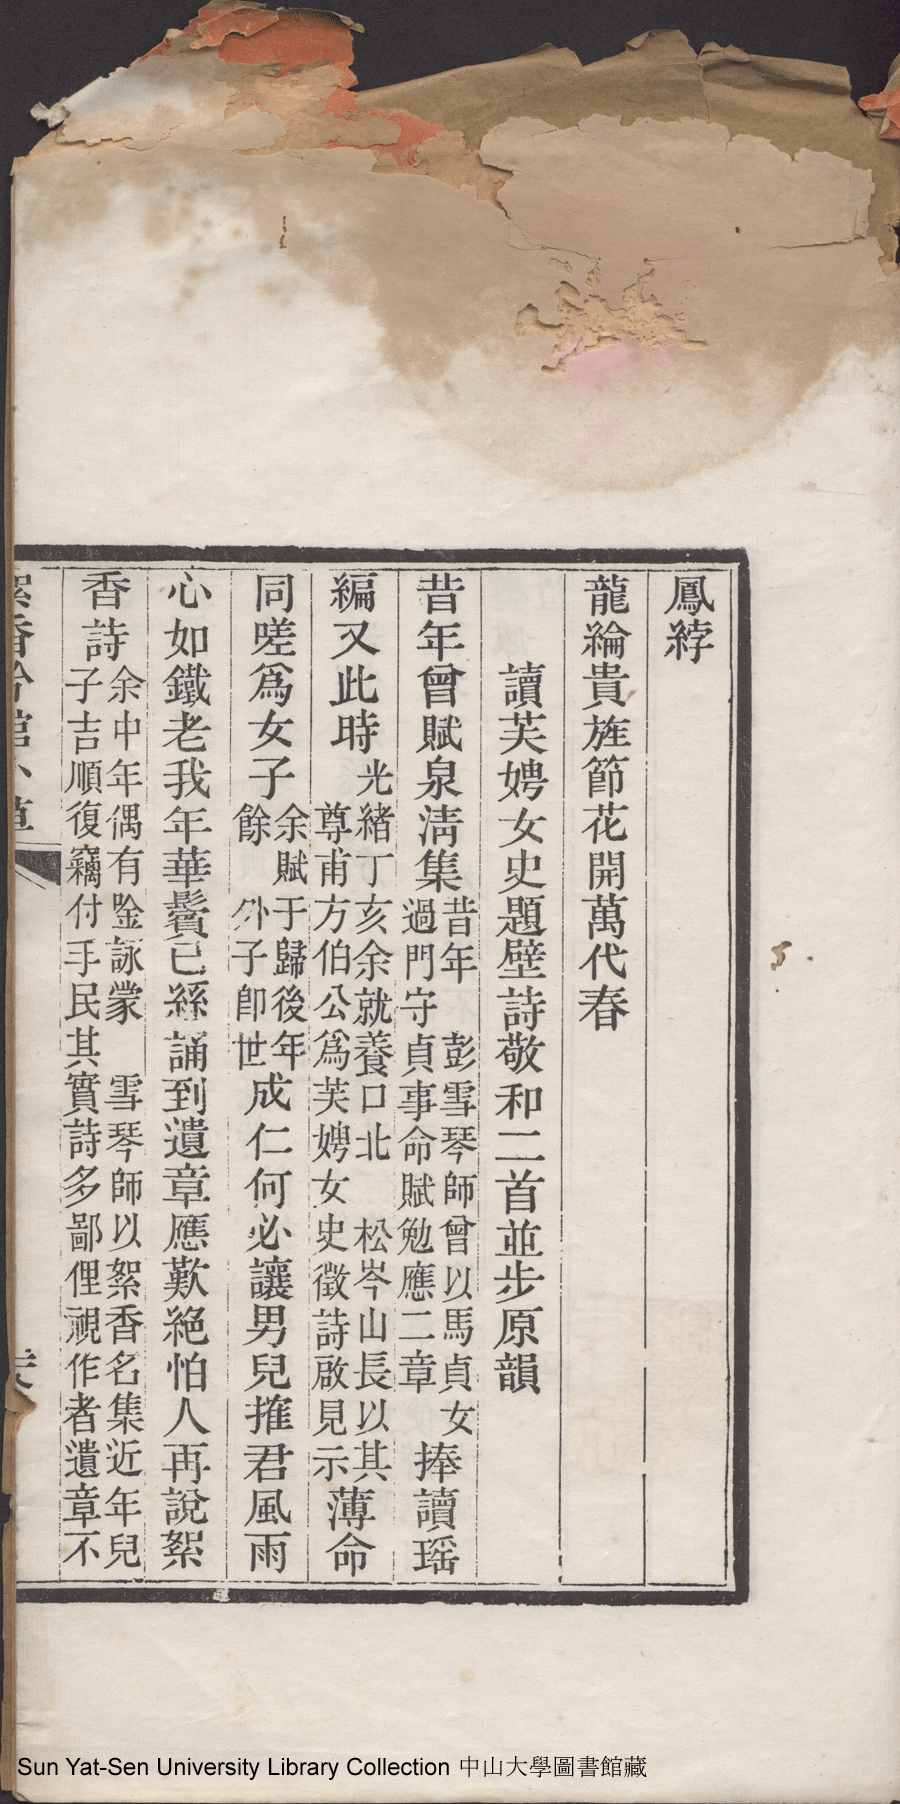 鳳綍
龍綸貴旌節花開萬代春
讀芙娉女史題壁詩敬和二首並步原韻
昔年曾賦泉淸集昔年　彭雪琴師曾以馬貞女過門守貞事命賦勉應二章捧讀瑶
編又此時光緒丁亥余就養口北　松岑山長以其尊甫方伯公爲芙娉女史徵詩啟見示薄命
同嗟爲女子余賦于歸後年餘　外子卽世成仁何必讓男兒摧君風雨
心如鐵老我年華鬢已絲誦到遺章應歎絶怕人再說絮
香詩余中年偶有唫詠蒙　雪琴師以絮香名集近年兒子吉順復竊付手民其實詩多鄙俚視作者遺章不
絮香吟館小草
Sun Yat-Sen University Library Collection 中山大學圖書館藏